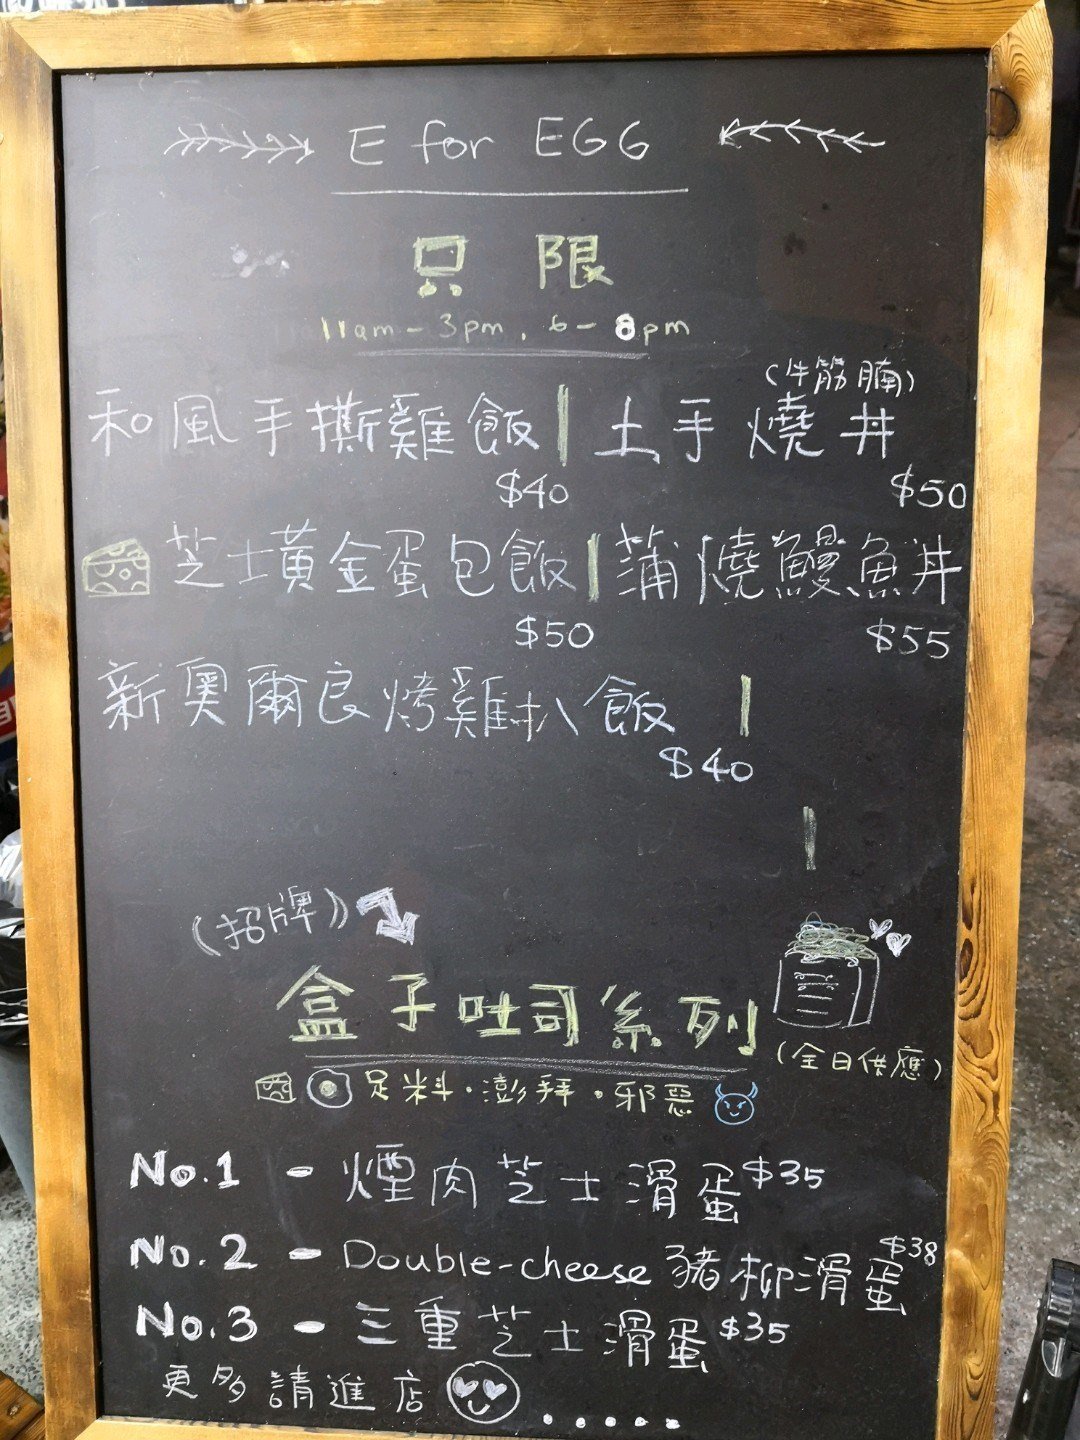 E for EGG
只限
11am - 3pm, 6 - 8pm
(牛筋腩)
和風手撕雞飯 | 土手燒丼
$40 $50
芝士黃金蛋包飯 | 蒲燒鰻魚丼
$50 $55
新奧爾良烤雞扒飯 |
$40
(招牌)
盒子吐司系列
(全日供應)
足料·澎拜·邪惡
No.1 - 煙肉芝士滑蛋 $35
No.2 - Double-cheese 豬柳滑蛋 $38
No.3 - 三重芝士滑蛋 $35
更多請進店 .....